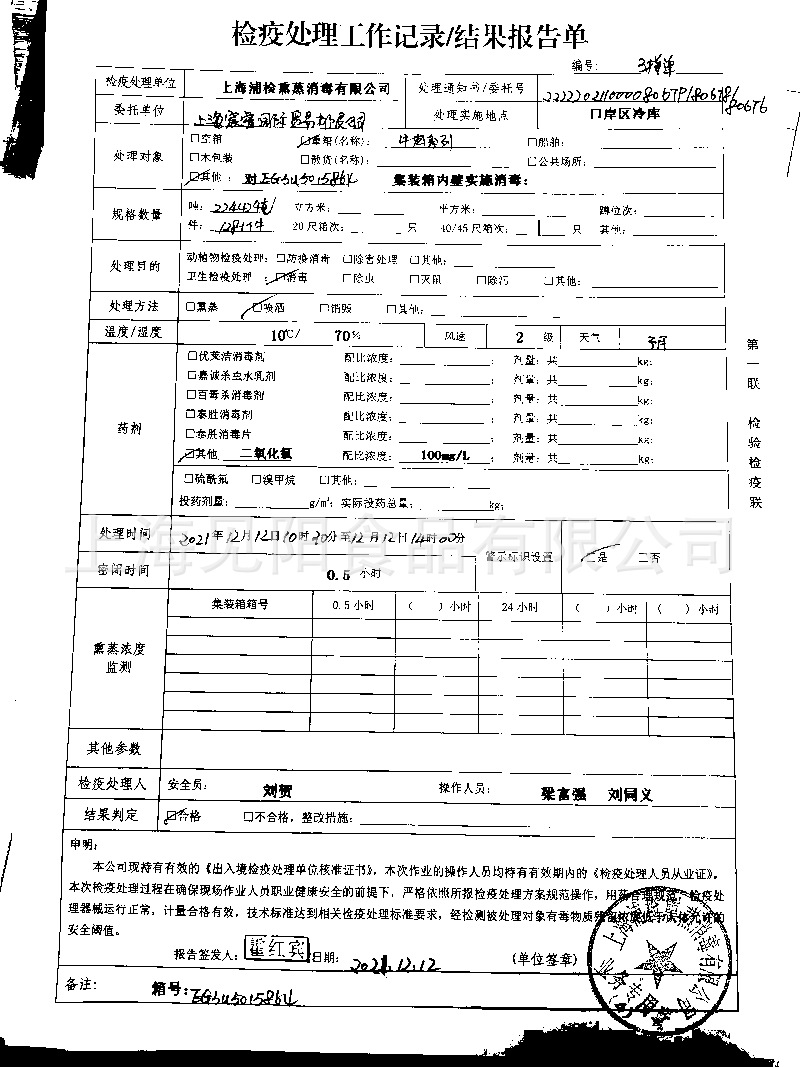 检疫处理工作记录/结果报告单
编号:
检疫处理单位 上海浦检熏蒸消毒有限公司 处理通知书/委托号
委托单位 处理实施地点 口岸区冷库
处理对象 □空箱 □重箱(名称): □船舶:
□木包装 □散货(名称): □公共场所:
□其他: 对EGSU5015864 集装箱内壁实施消毒:
规格数量 吨: 立方米: 平方米: 蹲位次:
件: 20尺箱次: 只 40/45尺箱次: 1 只 其他:
处理目的 动植物检疫处理: □防疫消毒 □除害处理 □其他:
卫生检疫处理: □消毒 □除虫 □灭鼠 □除污 □其他:
处理方法 □熏蒸 □喷洒 □销毁 □其他:
温度/湿度 10℃/ 70% 风速 2 级 天气
药剂 □优氯洁消毒剂 配比浓度: 剂量: 共 kg;
□嘉诚杀虫水乳剂 配比浓度: 剂量: 共 kg;
□百毒杀消毒剂 配比浓度: 剂量: 共 kg;
□泰胜消毒剂 配比浓度: 剂量: 共 kg;
□泰胜消毒片 配比浓度: 剂量: 共 kg;
□其他 二氧化氯 配比浓度: 100mg/L 剂量: 共 kg;
□硫酰氟 □溴甲烷 □其他:
投药剂量: g/m³; 实际投药总量: kg;
处理时间 2021年12月12日10时30分至12月12日14时00分
警示标识设置 □是 □否
密闭时间 0.5 小时
熏蒸浓度监测 集装箱箱号 0.5小时 ( )小时 24小时 ( )小时 ( )小时
其他参数
检疫处理人 安全员: 刘贺 操作人员: 梁富强 刘同义
结果判定 □合格 □不合格, 整改措施:
申明:
本公司现持有有效的《出入境检疫处理单位核准证书》, 本次作业的操作人员均持有有效期内的《检疫处理人员从业证》。
本次检疫处理过程在确保现场作业人员职业健康安全的前提下, 严格依照所报检疫处理方案规范操作, 用药合理规范, 检疫处
理器械运行正常, 计量合格有效, 技术标准达到相关检疫处理标准要求, 经检测被处理对象有毒物质残留浓度低于人体允许的
安全阈值。
报告签发人: 霍红宾 日期: 2021.12.12 (单位签章)
备注: 箱号: EGSU5015864
第一联 检验检疫联
上海浦检熏蒸消毒有限公司
业务专用章
(4)
上海见阳食品有限公司